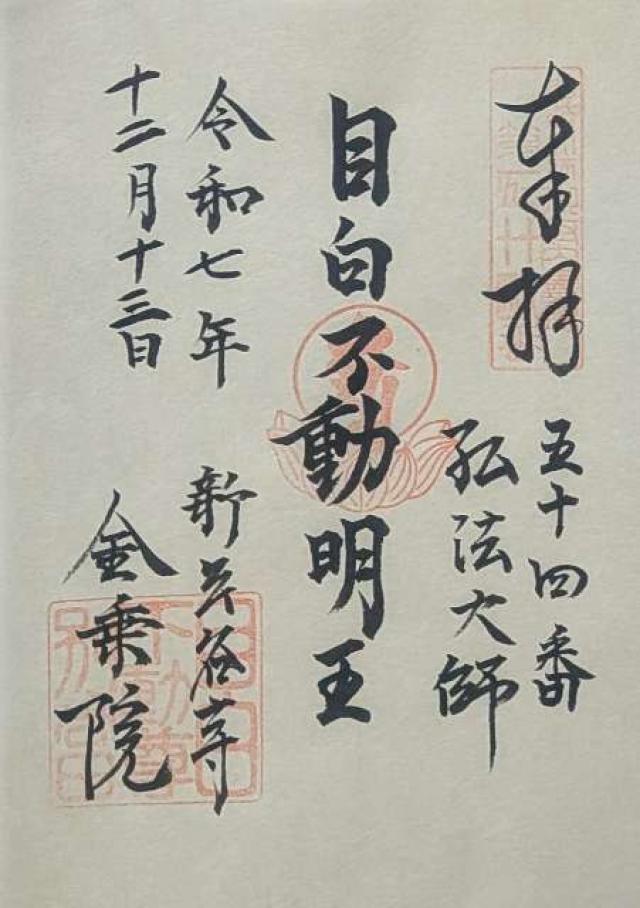 奉拝
五十四番
弘法大師
目白不動明王
令和七年
十二月十三日
新長谷寺
金乗院